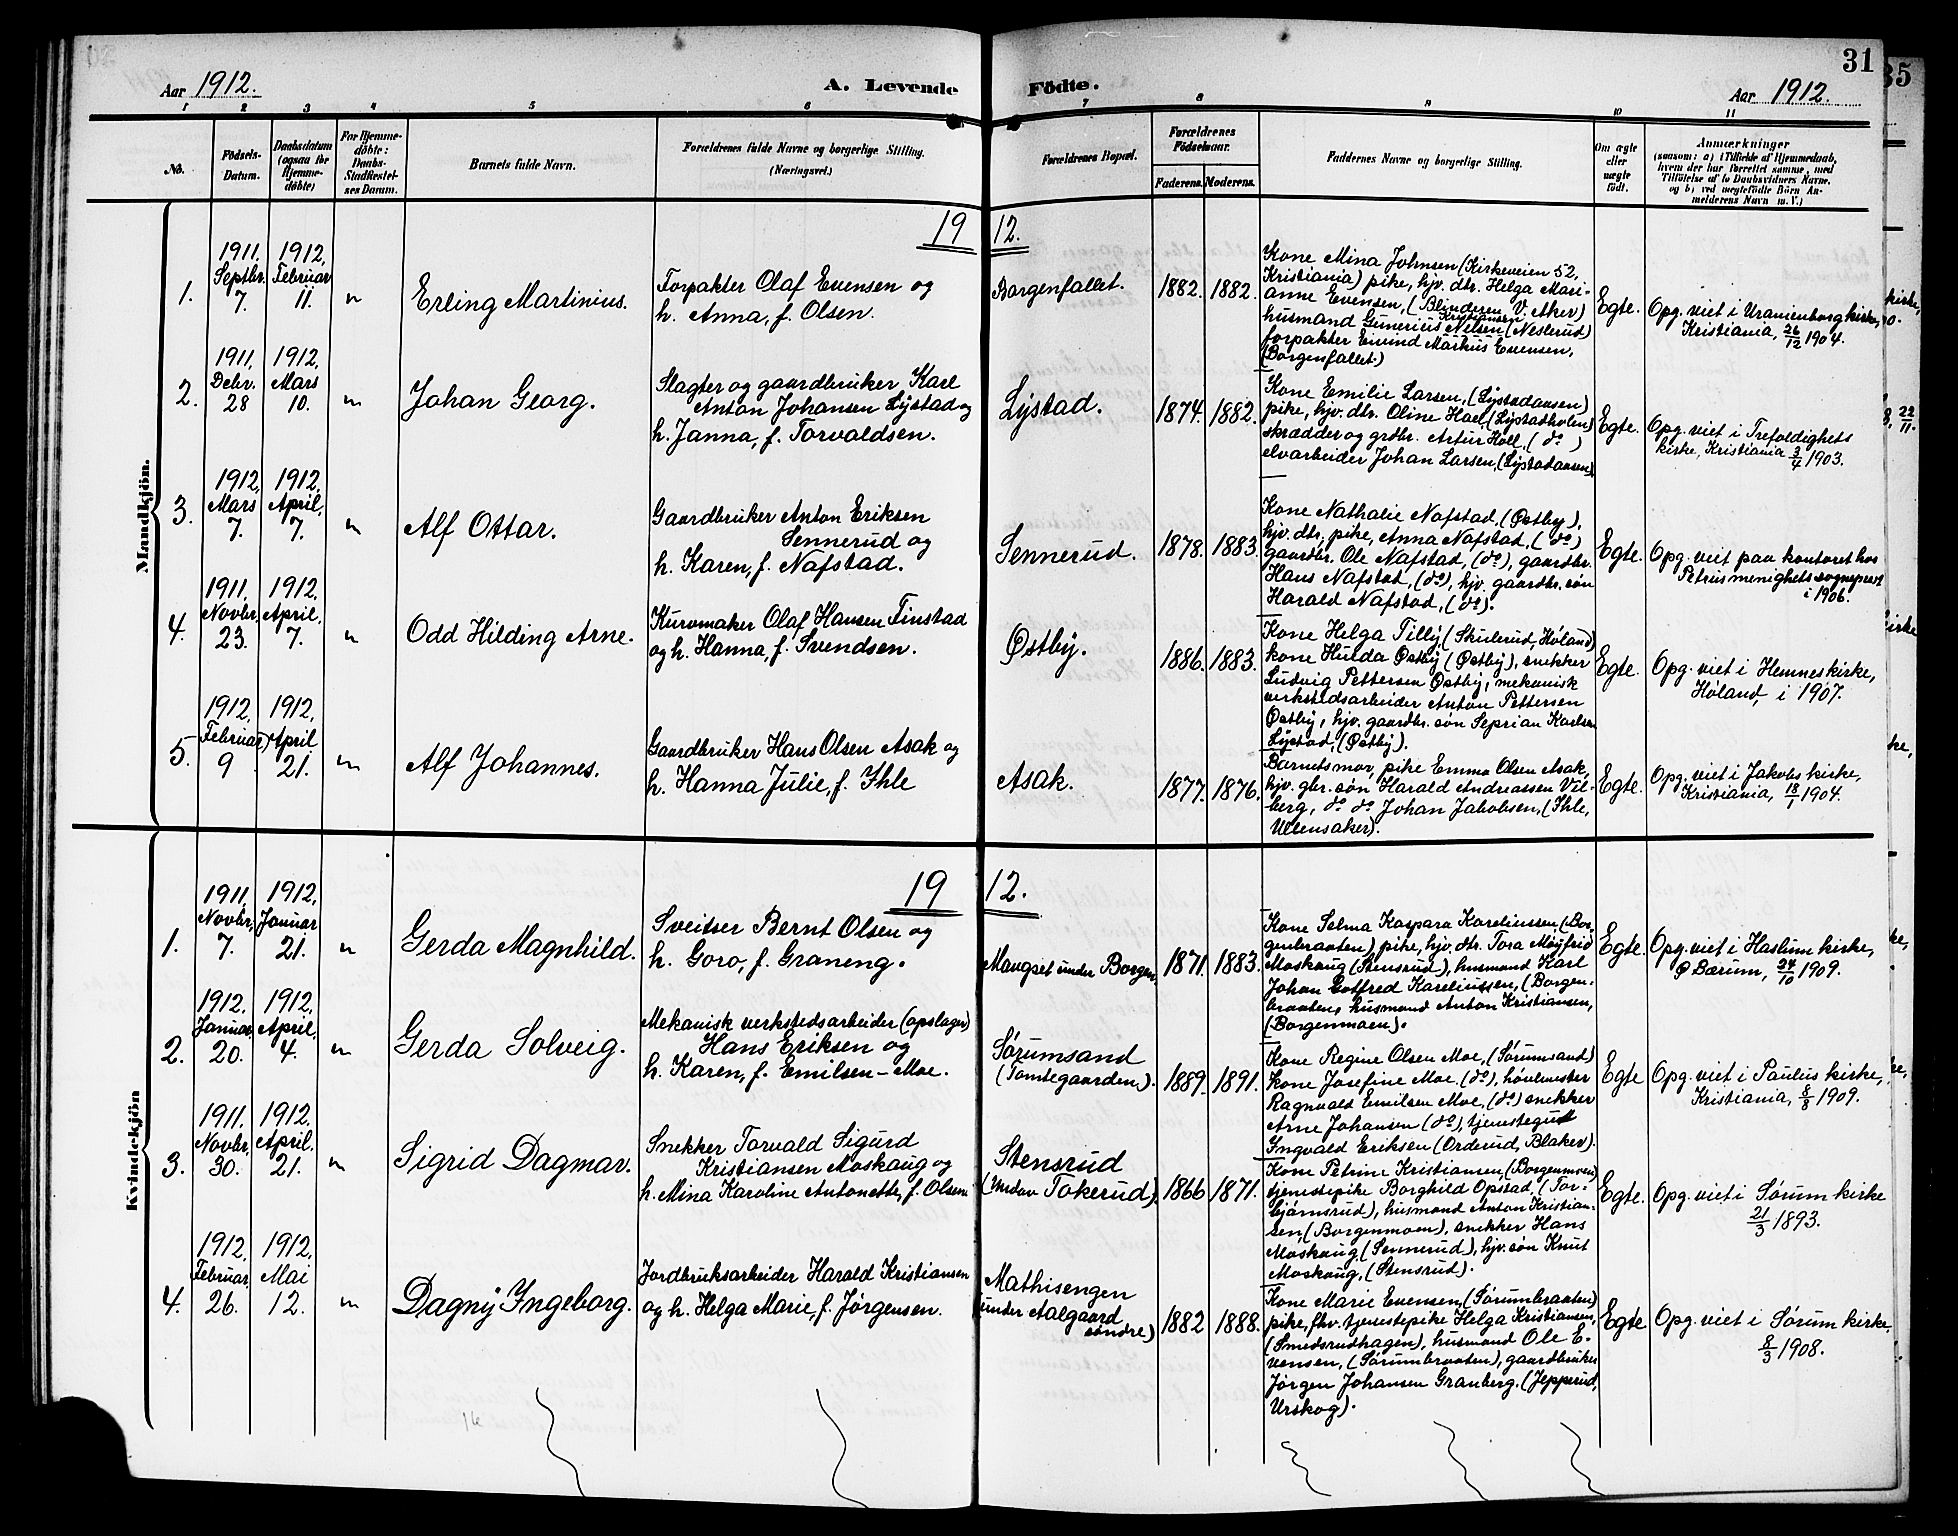 31
35
Aar 1912.
A. Levende
Födte.
Aar 1912.
1 2 3 4 5 6 7 8 9 10 11
No.
Födsels-
Datum.
Daabsdatum
(ogsaa for
Hjemme-
döbte)
For Hjemme-
döbte:
Daabs-
Stadfæstel-
ses Datum.
Barnets fulde Navn.
Forældrenes fulde Navne og borgerlige Stilling.
(Næringsvei.)
Forældrenes Bopæl.
Forældrenes
Födselsaar.
Faderens. Moderens.
Faddernes Navne og borgerlige Stilling.
Om ægte
eller
uægte
födt.
Anmærkninger
(saasom: a) i Tilfælde af Hjemmedaab,
hvem der har forrettet samme, med
Tilföielse af to Daabsvidners Navne,
og b) ved uægtefödte Börn An-
melderens Navn m. V.)
Mandkjön.
19 12.
1.
1911.
Septbr.
7.
1912.
Februar
11.
"
Erling Martinius.
Forpakter Olaf Evensen og
h. Anna, f. Olsen.
Borgenfallet.
1882. 1882.
Kone Mina Johnsen (Kirkeveien 52,
Kristiania) pike, hjv. dtr. Helga Mari-
anne Evensen, (Blinderen V. Aker)
husmand Gunerius Kristiansen Nelsen (Neslerud)
forpakter Eivind Markus Evensen,
(Borgenfallet.)
Egte.
Opg. viet i Uranienborg kirke,
Kristiania, 26/12 1904.
2.
1911.
Debr.
28
1912.
Mars
10.
"
Johan Georg.
Slagter og gaardbruker Karl
Anton Johansen Lystad og
h. Janna, f. Torvaldsen.
Lystad.
1874. 1882.
Kone Emilie Larsen, (Lystadaasen)
pike, hjv. dtr. Oline Hael (Lystadholen)
skrædder og grdbr. Artur Holl, (do)
elvarbeider Johan Larsen, (Lystadaasen)
Egte.
Opg. viet i Trefoldighets
kirke, Kristiania 3/4 1903.
3.
1912.
Mars
7.
1912.
April.
7.
"
Alf Ottar.
Gaardbruker Anton Eriksen
Sennerud og
h. Karen, f. Nafstad.
Sennerud.
1878. 1883.
Kone Nathalie Nafstad, (Østby),
hjv. dtr. pike, Anna Nafstad, (do)
gaardbr. Ole Nafstad, (do), gaardbr.
Hans Nafstad, (do), hjv. gaardbr. søn
Harald Nafstad, (do).
Egte.
Opg. viet paa kontoret hos
Petrus menighets sogneprest
i 1906.
4.
1911.
Novbr.
23.
1912.
April.
7.
"
Odd Hilding Arne.
Kurvmaker Olaf Hansen Finstad
og h. Hanna, f. Svendsen.
Østby.
1886. 1883.
Kone Helga Tilly (Skulerud, Høland)
kone Hulda Østby (Østby), snekker
Ludvig Pettersen Østby, mekanisk
verkstedsarbeider Anton Pettersen
Østby, hjv. gaardbr. søn Seprian Karlsen
Lystad, (Østby).
Egte.
Opg. viet i Hemnes kirke,
Høland, i 1907.
5.
1912.
Februar
9
1912.
April
21.
"
Alf Johannes.
Gaardbruker Hans Olsen Asak og
h. Hanna Julie, f. Ihle
Asak.
1877. 1876.
Barnets mor, pike Emma Olsen Asak,
hjv. gbr. søn Harald Andreassen Vil-
berg, do do Johan Jakobsen, (Ihle,
Ullensaker).
Egte.
Opg. viet i Jakobs kirke,
Kristiania, 18/1 1904.
Kvindekjön
19 12.
1.
1911.
Novbr.
7.
1912.
Januar
21.
"
Gerda Magnhild.
Sveitser Bernt Olsen og
h. Goro, f. Graneng.
Maugset under Borgen.
1871. 1883.
Kone Selma Kaspara Kareliussen (Bor-
genbraaten) pike, hjv. dtr. Tora Møyfrid
Moskaug (Stensrud), husmand Karl
Johan Gotfred Kareliussen, (Borgen-
braaten, husmand Anton Kristiansen,
(Borgenmoen).
Egte.
Opg. viet i Haslum kirke,
Ø Bærum, 24/10 1909.
2.
1912.
Januar.
20.
1912.
April.
4.
"
Gerda Solveig.
Mekanisk verkstedsarbeider (opslager)
Hans Eriksen og
h. Karen, f. Emilsen-Moe.
Sørumsand
(Tomtegaarden).
1889. 1891.
Kone Regine Olsen Moe, (Sørumsand)
kone Josefine Moe, (do), høvlmester
Ragnvald Emilsen Moe, (do) snekker
Arne Johansen (do), tjenestegut
Ingvald Eriksen (Orderud, Blaker).
Egte
Opg. viet i Paulus kirke,
Kristiania, 8/8 1909.
3.
1911.
Novbr.
30.
1912.
April.
21.
"
Sigrid Dagmar.
Snekker Torvald Sigurd
Kristiansen Moskaug og
h. Mina Karoline Antonette, f. Olsen.
Stensrud
(Under Tokerud).
1866 1871.
Kone Petrine Kristiansen, (Borgenmoen)
tjenestepike Borghild Opstad, (Tor-
bjørnsrud), husmand Anton Kristian-
sen, (Borgenmoen), snekker Hans
Moskaug, (Sennerud), hjv. søn Knut
Moskaug, (Stensrud).
Egte.
Opg. viet i Sørum kirke
21/3 1893.
4.
1912.
Februar
26.
1912.
Mai
12.
"
Dagny Ingeborg.
Jordbruksarbeider Harald Kristiansen
og h. Helga Marie, f. Jørgensen.
Mathisengen
(under Aalgaard
søndre)
1882 1888.
Kone Marie Evensen, (Sørumbraaten)
pike, fhv. tjenestepike Helga Kristiansen,
(Smedsrudhagen), husmand Ole E-
vensen, (Sørumbraaten), gaardbruker
Jørgen Johansen Granberg. (Jepperud,
Urskog).
Egte
Opg. viet i Sørum kirke.
8/3 1908.